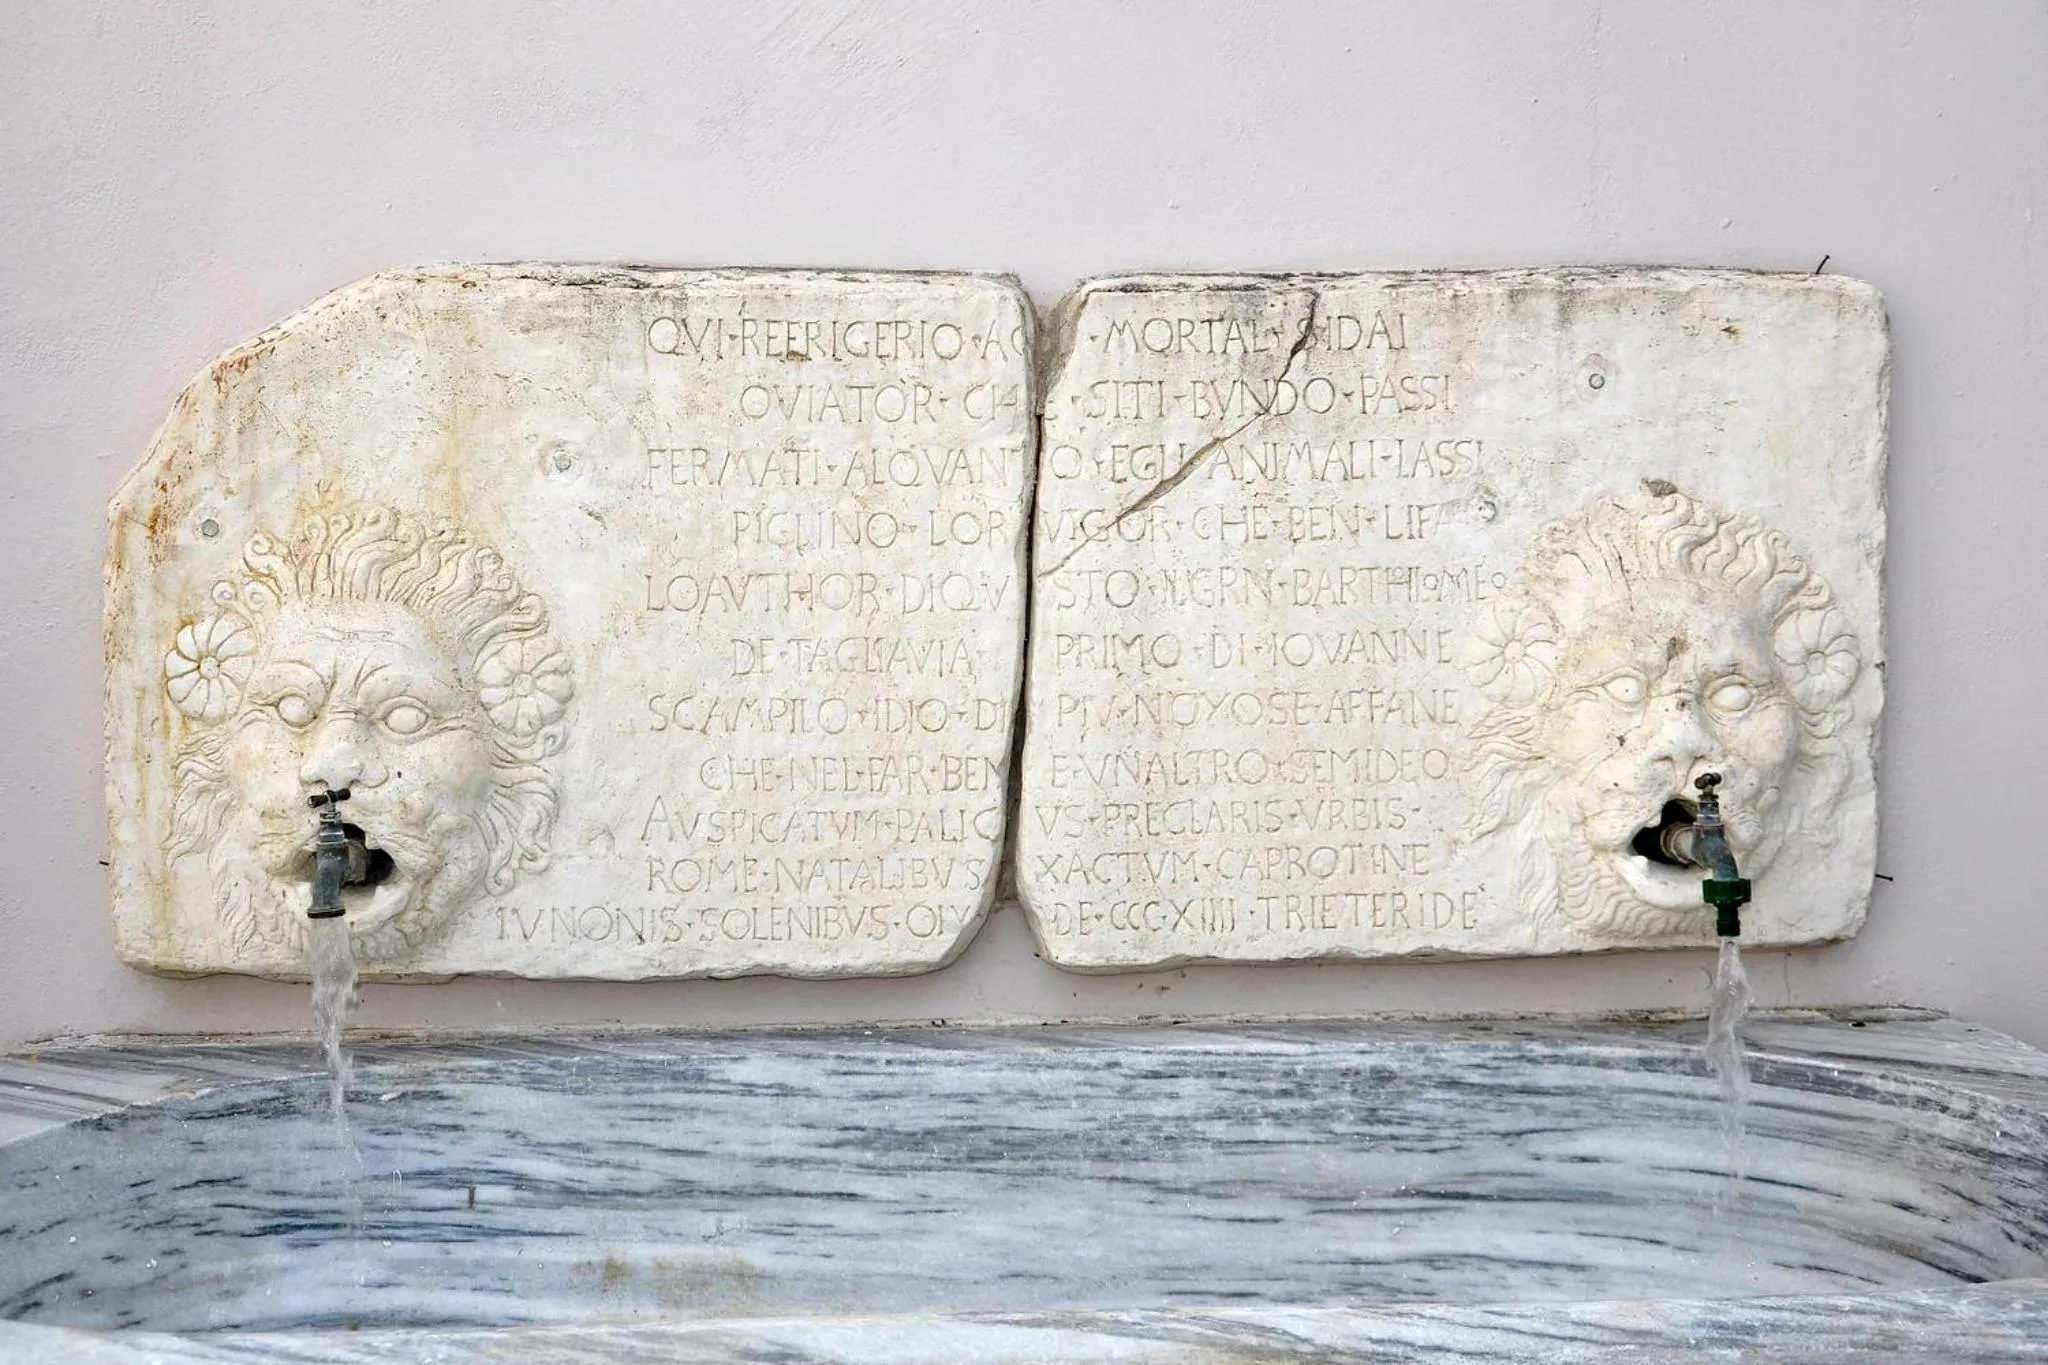 QVI·REFRIGERIO·A MORTAL·SIDAI
OVIATOR·CHE·SITI·BVNDO·PASSI
FERMATI·ALQVANTO·EGLI ANIMALI·LASSI
PIGLINO·LOR VIGOR·CHE·BEN·LIFA
LOAVTHOR·DIQVESTO·ILGRN·BARTHOLOMEO
DE·TAGLIAVIA·PRIMO·DI·IOVANNE
SCAMPILO·IDIO·DI PIV·NOYOSE·AFFANE
CHE·NEL·FAR·BEN E·VNALTRO·SEMIDEO
AVSPICATVM·PALIC VS·PRECLARIS·VRBIS·
ROME·NATALIBVS· XACTVM·CAPROTINE
IVNONIS·SOLENIBVS· DE·CCCXIIII·TRIETERIDE